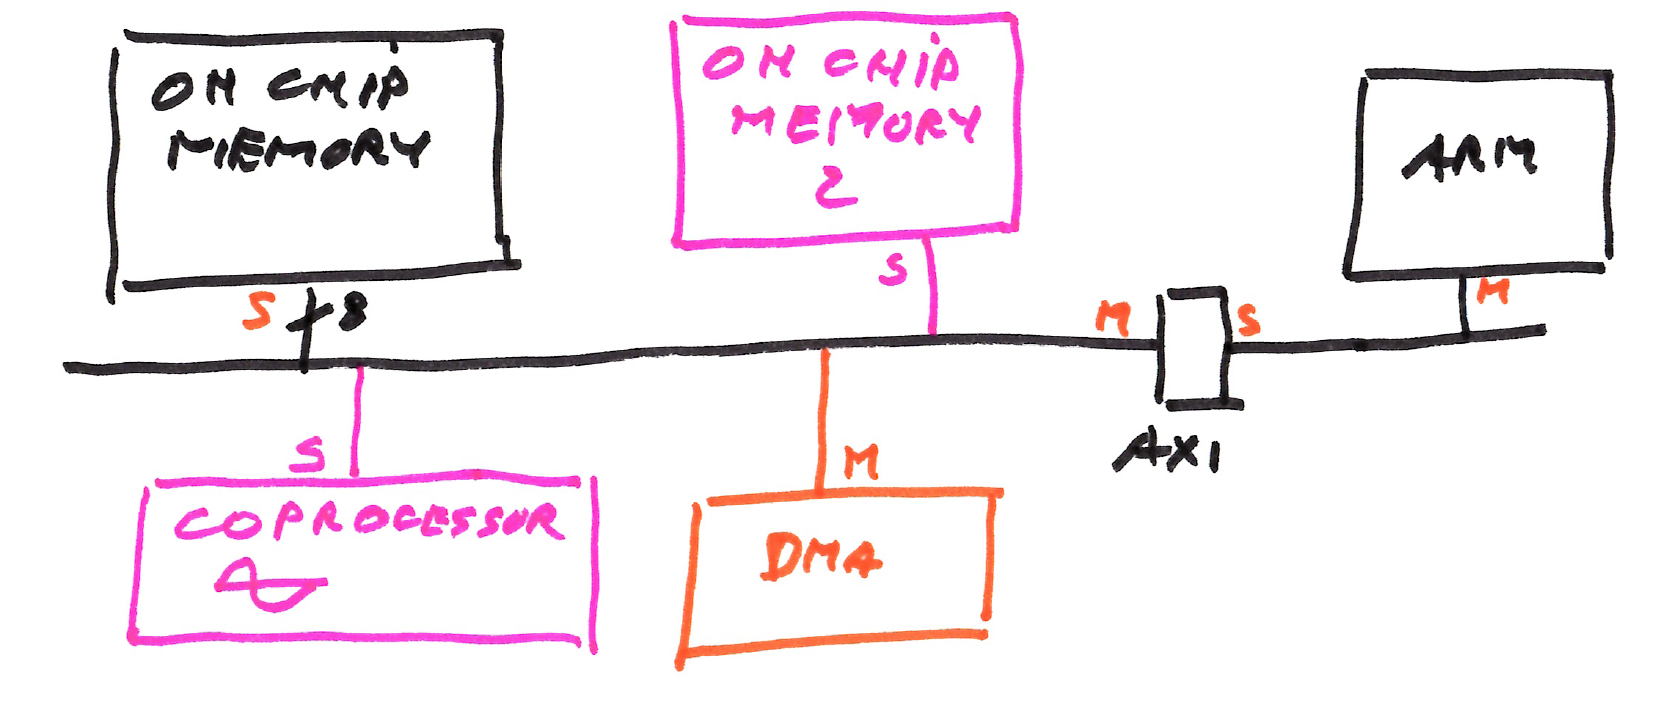 ON CHIP
MEMORY
S
8
ON CHIP
MEMORY
2
S
ARM
M
M
S
AXI
S
COPROCESSOR
M
DMA